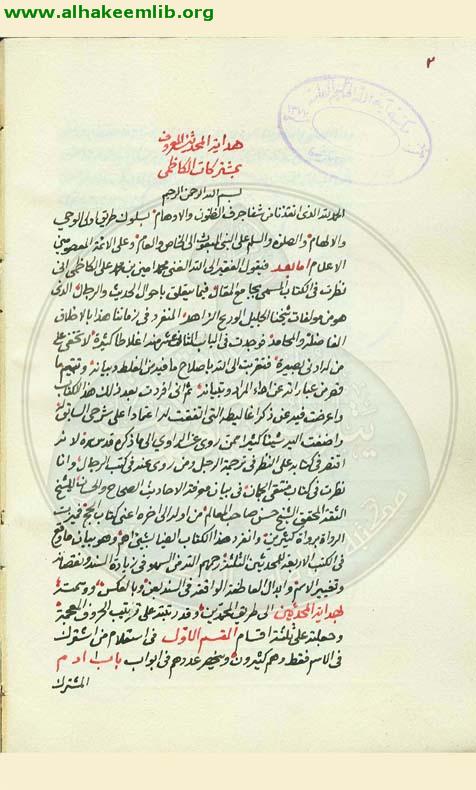 www.alhakeemlib.org
٢
هداية المحدثين المعروف
بمشتركات الكاظمى
بسم الله الرحمن الرحيم
الحمد لله الذى انقذنا من شفا جرف الظنون والاوهام بسلوك طريق اولى الوحى
والالهام والصلوة والسلم على النبى المبعوث الى الخاص والعام وعلى الائمة المعصومين
الاعلام اما بعد فيقول الفقير الى الله الغنى محمد امين بن محمد على الكاظمى انى
نظرت فى الكتاب المسمى بجامع المقال فيما يتعلق باحوال الحديث والرجال الذى
هو من مؤلفات شيخنا الجليل الورع الزاهد المنفرد فى زماننا هذا بالاطلاق
الفاضلة والمحامد فوجدت فى الباب الثانى عشر منه اغلاطا كثيرة لا تخفى على
من له ادنى بصيرة فتقربت الى الله باصلاح ما فيه من الغلط وبيانه وتتميم ما
نقص من عباراته عن اداء المراد وتبيانه ثم انى افردت بعد ذلك هذا الكتاب
واعرضت فيه عن ذكر اغاليطه التى اتفقت له اعتمادا على شرحى السابق
واضفت اليه شيئا كثيرا ممن روى عن الراوى الى ما ذكره قدس سره لانه
اقتصر فى كتابه على النظر فى ترجمة الرجل ومن روى عنه فى كتب الرجال وانا
نظرت فى كتاب منتقى الجمان فى بيان موفقه الاحاديث الصحاح والحسان للشيخ
الثقة المحقق الشيخ حسن صاحب المعالم من اوله الى اخره اعنى كتاب الحج فميزت
الرواة برواة كثيرين وانفرد هذا الكتاب ايضا بشئ اهم وهو بيان ما وقع
فى الكتب الاربعة للمحدثين الثلثة رحمهم الله من السهو فى زيادة السند ونقصانه
وتغيير الاسم وابدال العاطفة الواقعة فى السند بعن وبالعكس ووسمته
بهداية المحدثين الى طريقة المحمدين وقد رتبته على ترتيب الحروف المعجمة
وجعلته على ثلثة اقسام القسم الاول فى استعلام من اشترك
فى الاسم فقط وهم كثيرون وينحصر عددهم فى ابواب باب ادم
المشترك